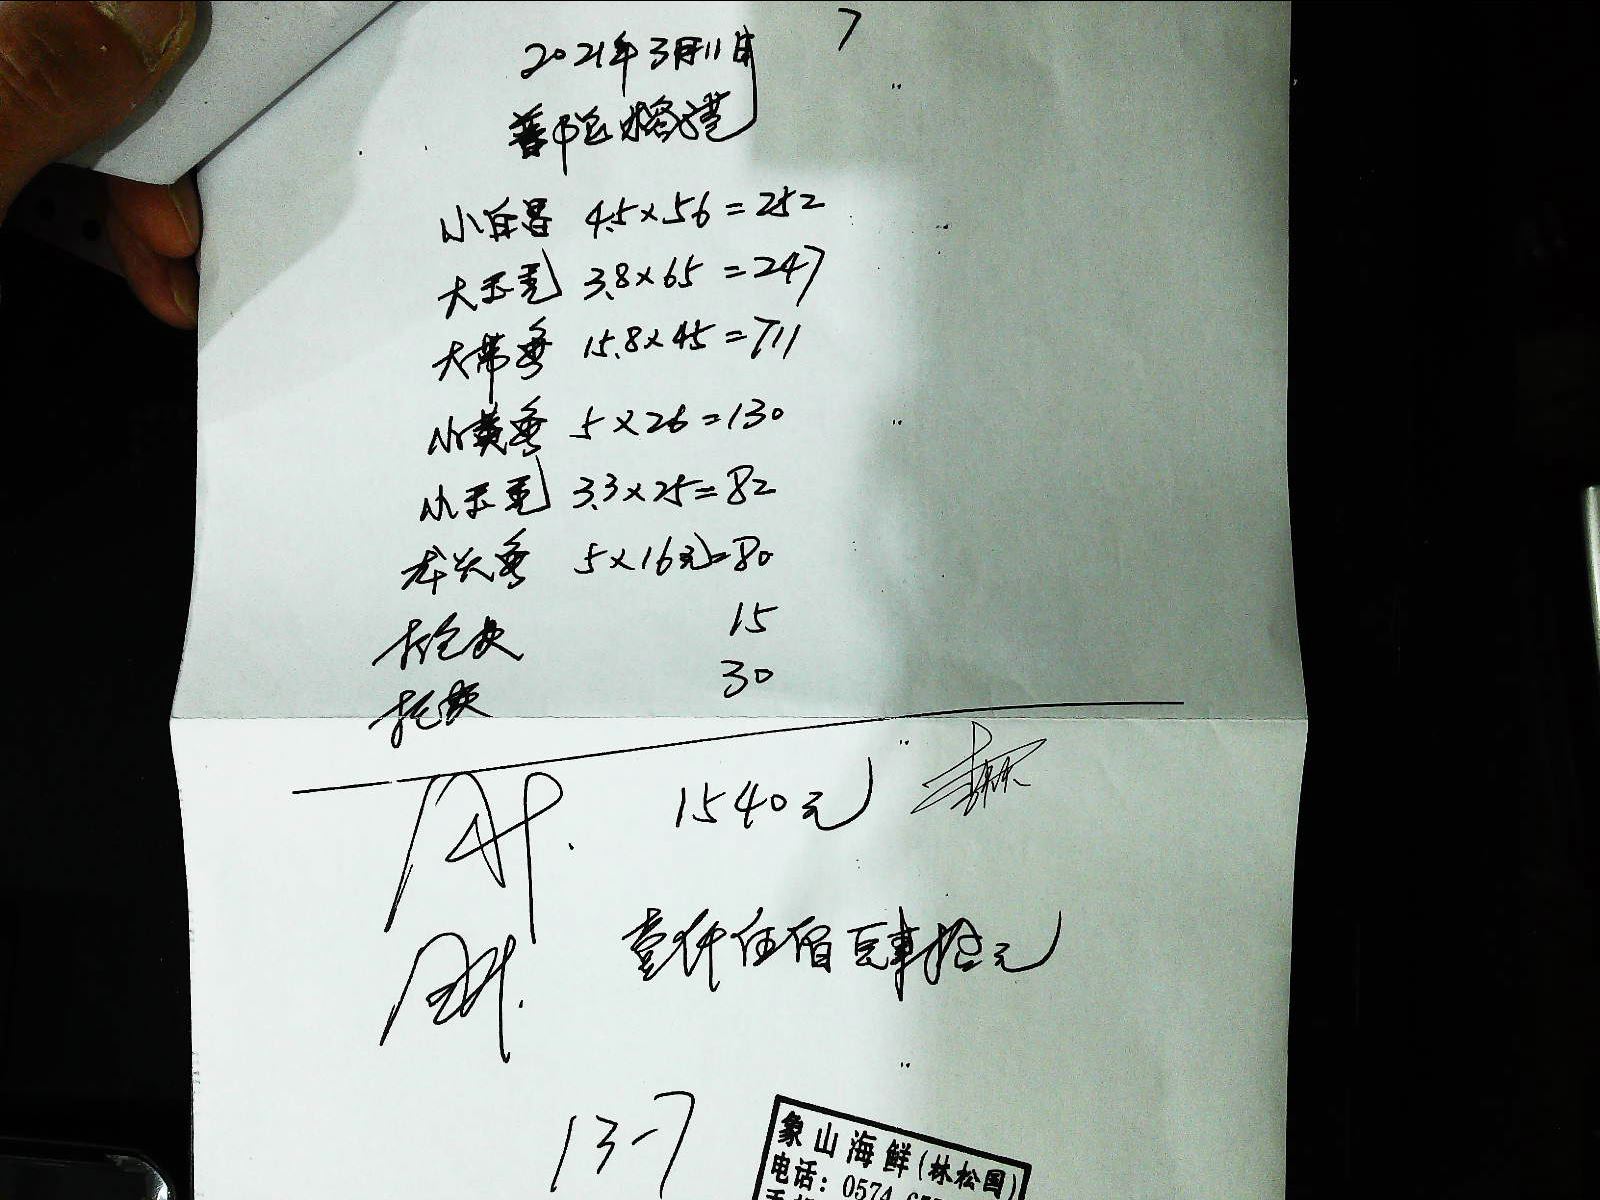 7
2021年3月11日
小白昌 4.5×56=252
大玉秃 3.8×65=247
大带鱼 15.8×45=711
小黄鱼 5×26=130
小玉秃 3.3×25=82
龙头鱼 5×16元=80
打包费 15
托费 30
1540元
壹仟伍佰肆拾元
13-7
象山海鲜(林松国)
电话: 0574